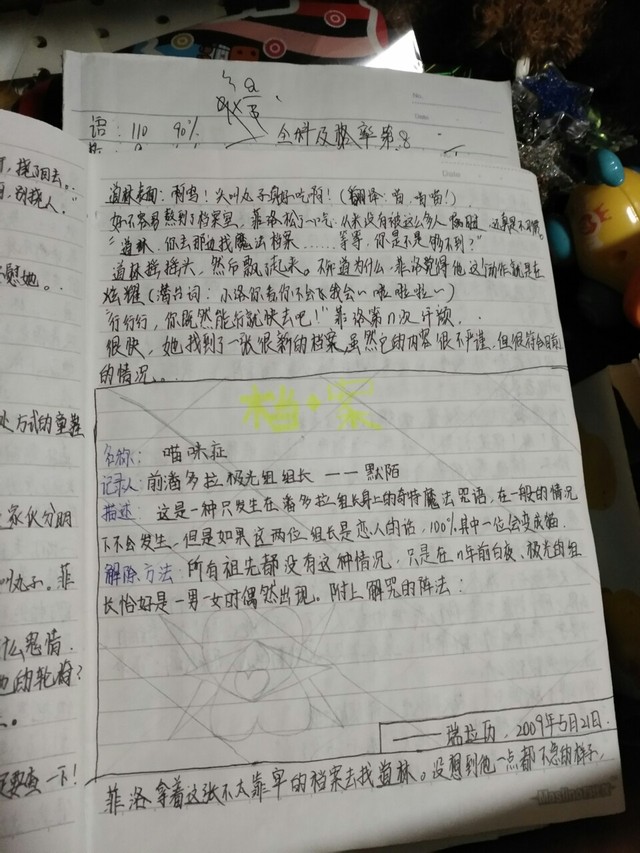 语：110 90% 全科及格率第8
No.
Date
Date
道林表面：啊呜！尖叫丸子身好吃啊！（翻译：苗，喵喵！）
好不容易熬到了档案室，菲洛松了一口气，从来没有被这么多人
"道林，你去那边找魔法档案……等等，你是不是够不到？"
道林摇摇头，然后飘了起来。不知道为什么，菲洛觉得他这个动作就是在
炫耀（潜台词：小洛你看你不会飞我会~啦啦啦~）
"行行行，你既然能行就快去吧！"菲洛第n次汗颜。
很快，她找到了一张很新的档案，虽然它的内容很不严谨，但很符合目前
的情况。
档案
名称：喵咪症
记录人：前潘多拉极光组组长——默陌
描述：这是一种只发生在潘多拉组长身上的奇特魔法咒语，在一般的情况
下不会发生，但是如果这两位组长是恋人的话，100%其中一位会变成猫。
解除方法：所有祖先都没有这种情况，只是在n年前白夜、极光的组
长恰好是一男一女时偶然出现。附上解咒的阵法：
——瑞拉历，2009年5月21日.
菲洛拿着这张不太靠卑的档案去找道林。没想到他一点都不急的样子，
了，摸了回去。
，别探人。
慰她。
处方式的重鞋
家伙分明
叫丸子。菲
什么思情.
她的轮椅？
一下！